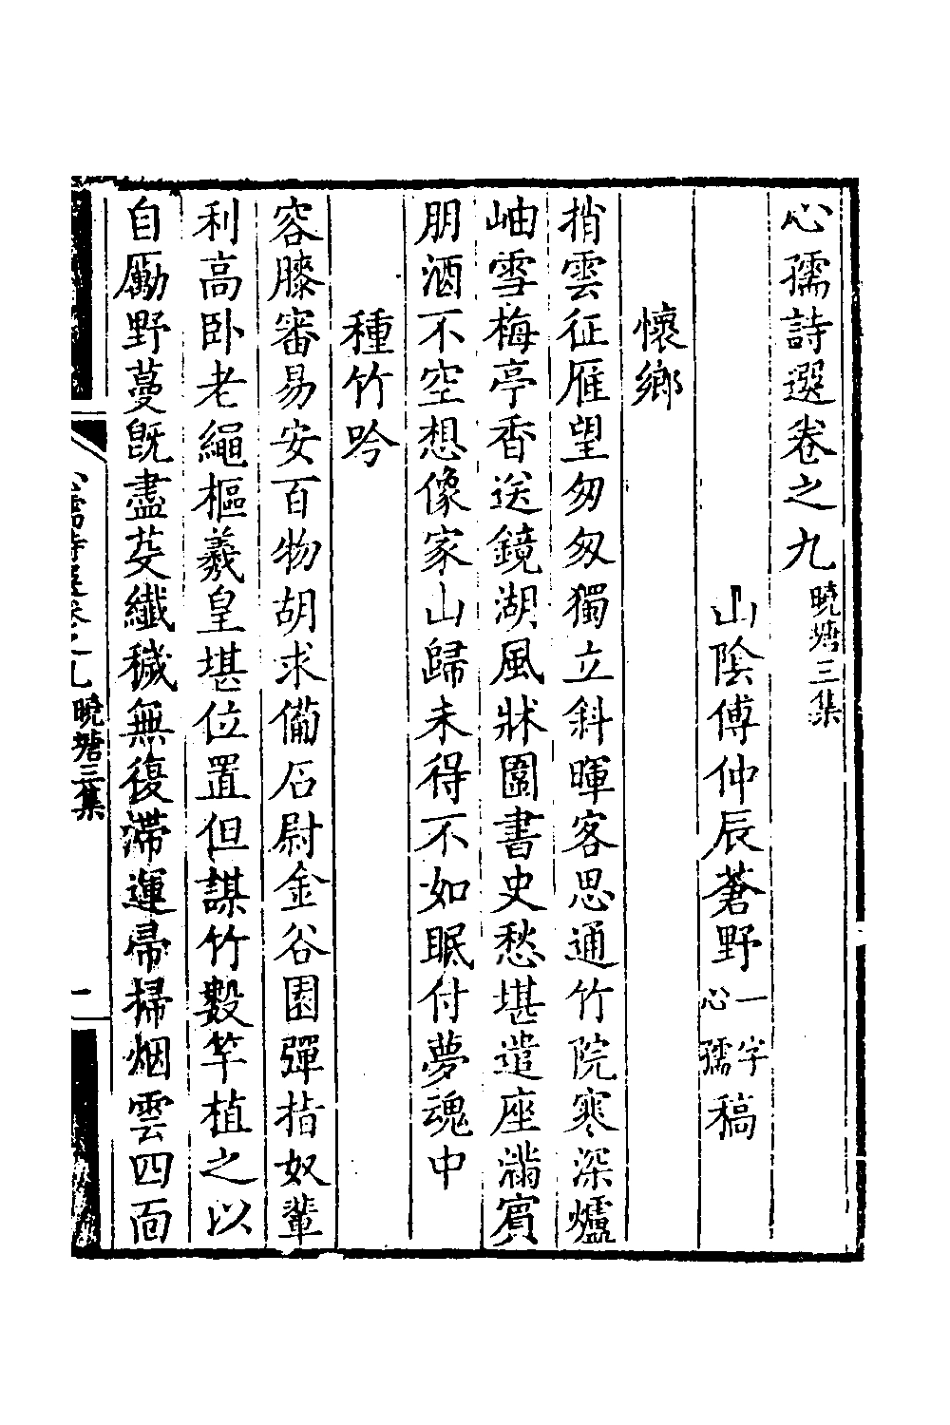 心孺詩選卷之九曉塘三集
山陰傅仲辰蒼野一字心孺稿
懷鄉
捎雲征雁望匆匆獨立斜暉客思通竹院寒深爐
岫雪梅亭香送鏡湖風牀圖書史愁堪遣座滿賓
朋酒不空想像家山歸未得不如眠付夢魂中
種竹吟
容膝審易安百物胡求備石尉金谷園彈指奴輩
利高卧老繩樞羲皇堪位置但謀竹數竿植之以
自勵野蔓旣盡芟纖穢無復滯運帚掃烟雲四面
心孺詩選卷之九 曉塘三集 一